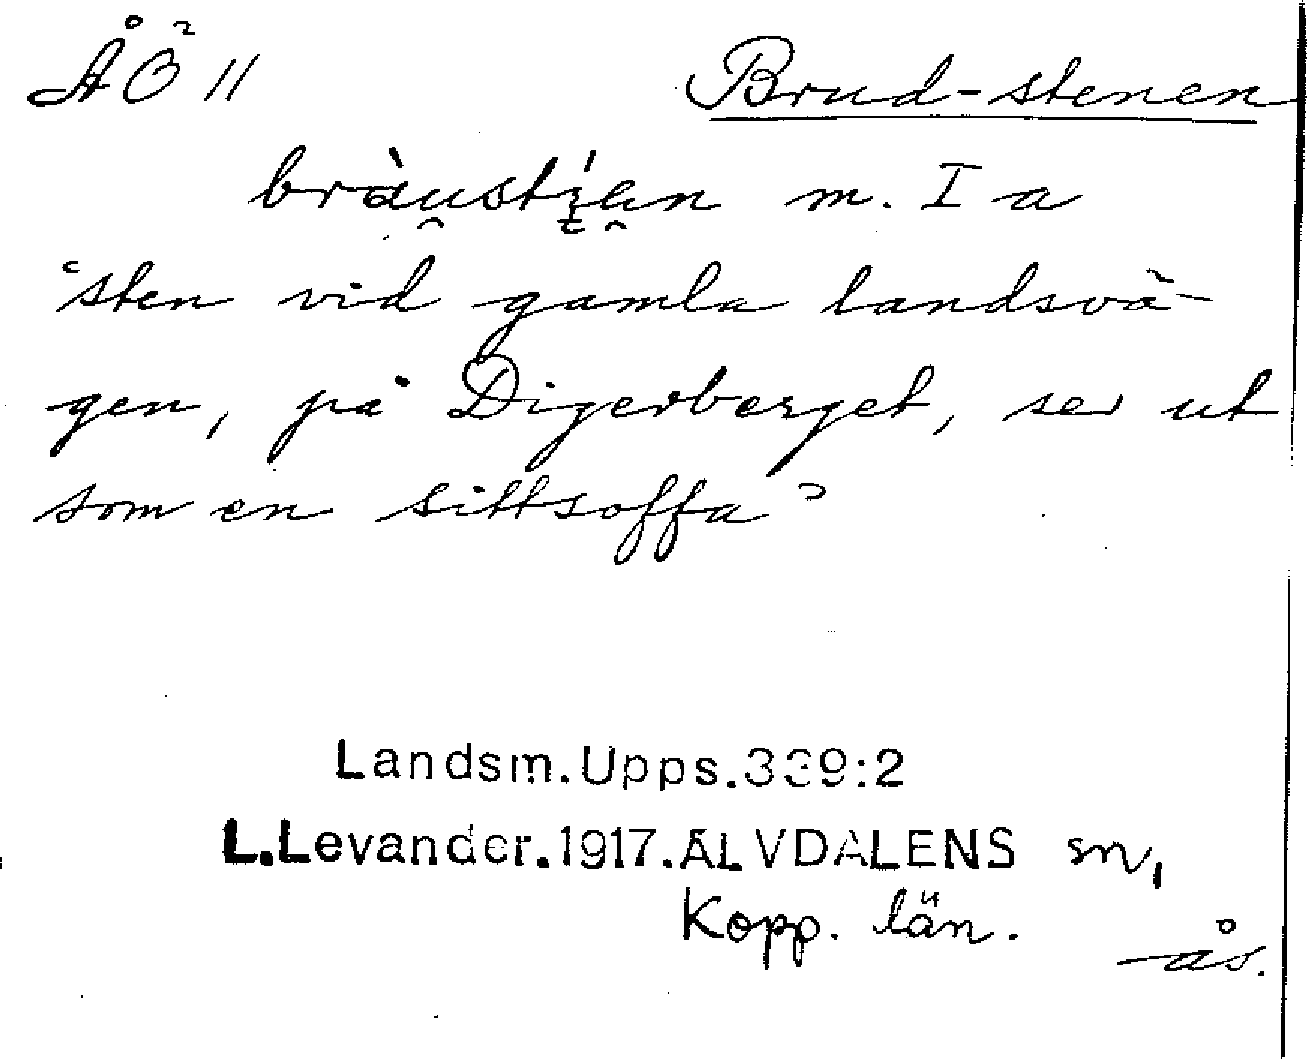 ÅÖ 11 Brud-stenen
bràusti̯en m. I a
"sten vid gamla landsvä-
gen, på Digerberget, ser ut
som en sittsoffa"
Landsm.Upps.339:2
L.Levander.1917.ÄLVDALENS sn,
Kopp. län.
ås.